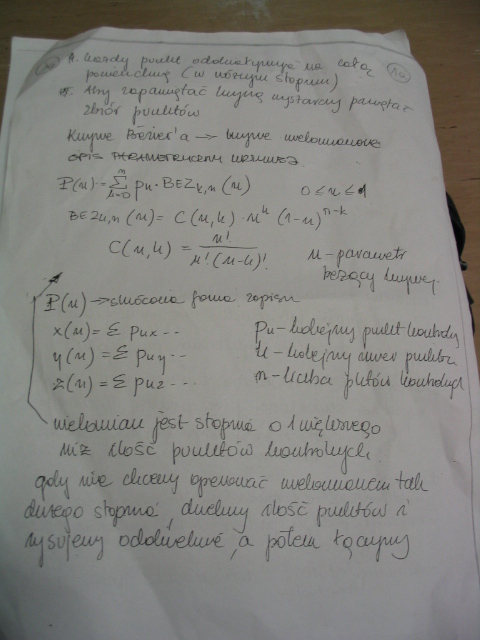 A. każdy punkt oddziaływuje na całą
powierzchnię (w różnym stopniu)
Aby zapamiętać krzywą wystarczy pamiętać
zbiór punktów
Krzywe Bézier'a → krzywe wielomianowe
P(u) = Σ pk · BEZk,n (u) 0 ≤ u ≤ 1
BEZk,n (u) = C(n,k) · u^k (1-u)^n-k
C(n,k) = n! / k! (n-k)! u - parametr
bieżący krzywej
P(u) → skrócona forma zapisu
x(u) = Σ pkx ... pk - kolejny punkt kontrolny
y(u) = Σ pky ... k - kolejny numer punktu
z(u) = Σ pkz ... n - liczba pktów kontrolnych
wielomian jest stopnia o 1 większego
niż ilość punktów kontrolnych
gdy nie chcemy operować wielomianem tak
dużego stopnia, dzielimy ilość punktów i
rysujemy oddzielnie, a potem łączymy